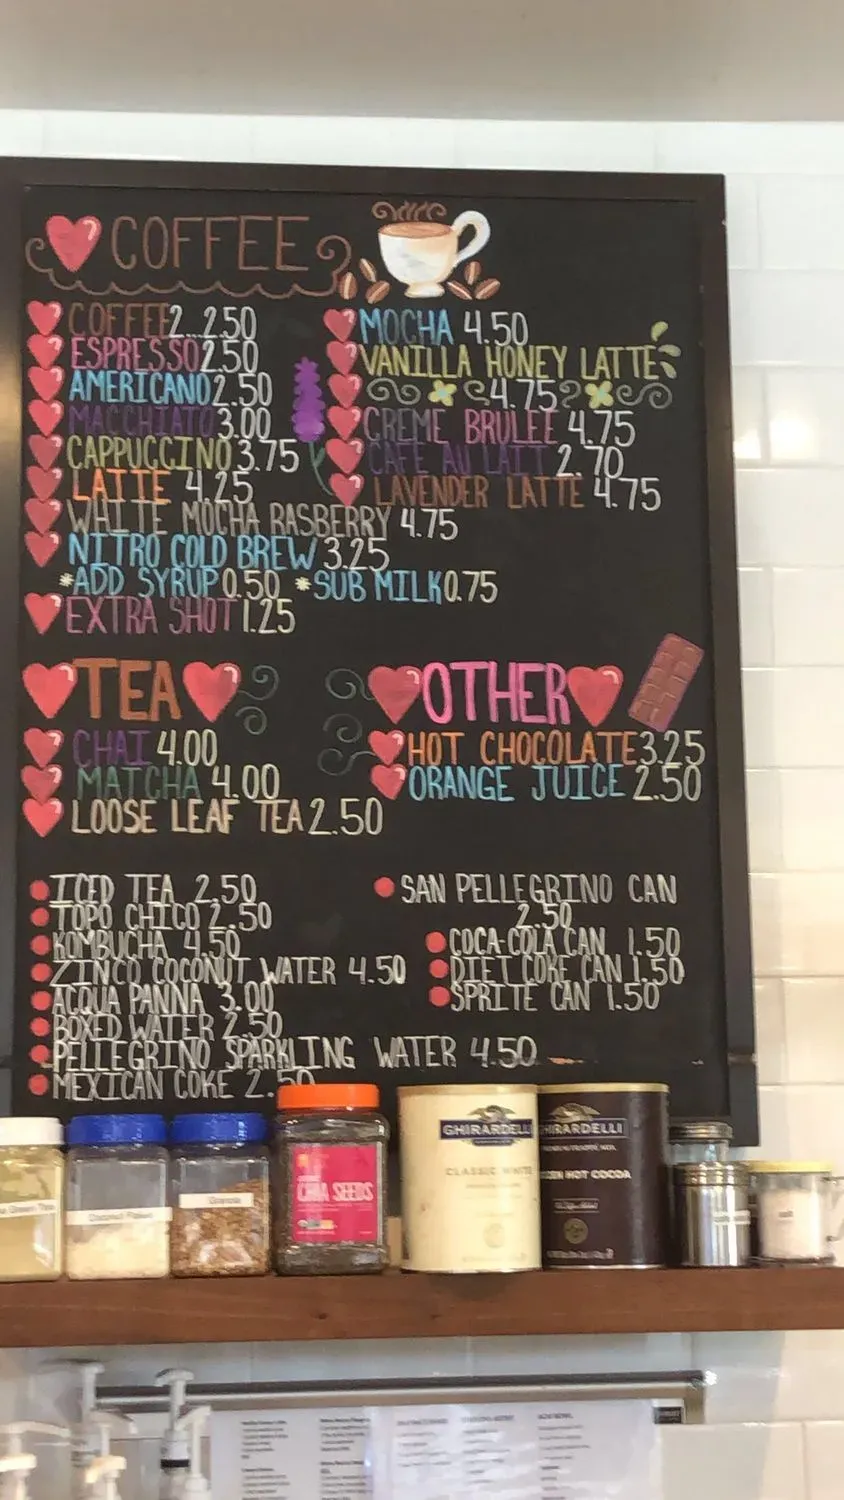 COFFEE
COFFEE 2..2.50
ESPRESSO 2.50
AMERICANO 2.50
MACCHIATO 3.00
CAPPUCCINO 3.75
LATTE 4.25
WHITE MOCHA RASBERRY 4.75
NITRO COLD BREW 3.25
*ADD SYRUP 0.50 *SUB MILK 0.75
EXTRA SHOT 1.25
MOCHA 4.50
VANILLA HONEY LATTE
4.75
CREME BRULEE 4.75
CAFE AU LAIT 2.70
LAVENDER LATTE 4.75
TEA
CHAI 4.00
MATCHA 4.00
LOOSE LEAF TEA 2.50
OTHER
HOT CHOCOLATE 3.25
ORANGE JUICE 2.50
ICED TEA 2.50
TOPO CHICO 2.50
KOMBUCHA 4.50
ZINCO COCONUT WATER 4.50
ACQUA PANNA 3.00
BOXED WATER 2.50
PELLEGRINO SPARKLING WATER 4.50
MEXICAN COKE 2.50
SAN PELLEGRINO CAN
2.50
COCA-COLA CAN 1.50
DIET COKE CAN 1.50
SPRITE CAN 1.50
Green Tea
Coconut Flakes
Granola
CHIA SEEDS
GHIRARDELLI
CLASSIC WHITE
HIRARDELLI
HOT COCOA